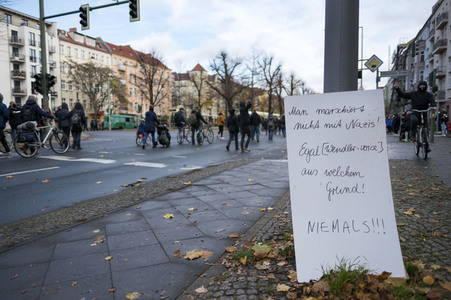 Man marschiert
nicht mit Nazis!
Egal [wendler-voice]
aus welchem
Grund!
NIEMALS!!!